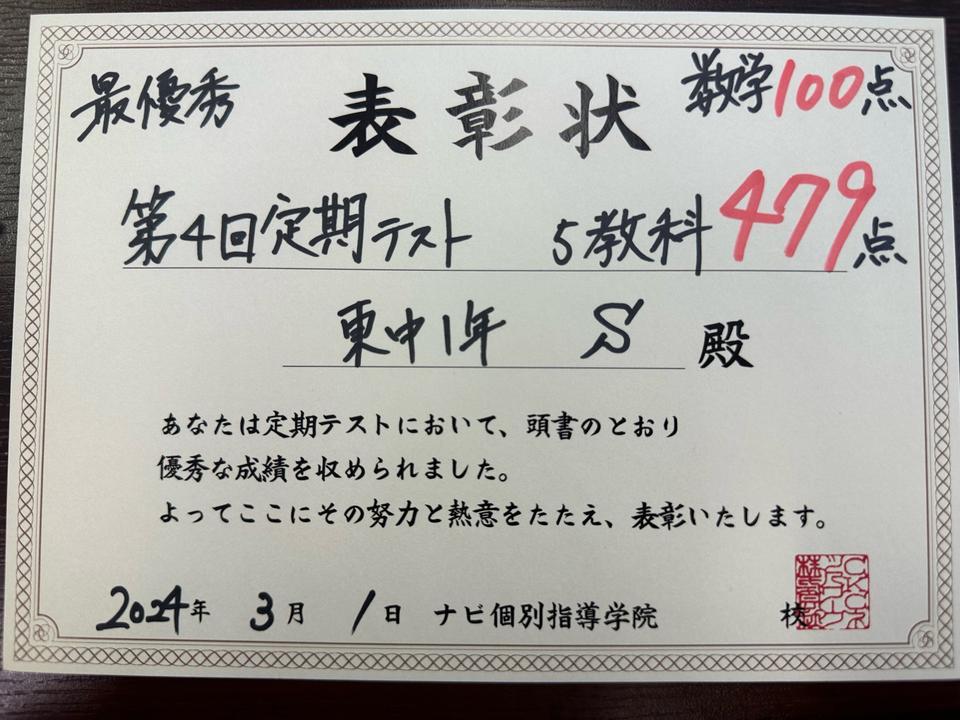 最優秀 表彰状 数学100点
第4回定期テスト 5教科479点
東中1年 S 殿
あなたは定期テストにおいて、頭書のとおり
優秀な成績を収められました。
よってここにその努力と熱意をたたえ、表彰いたします。
2024年 3月 1日 ナビ個別指導学院 校